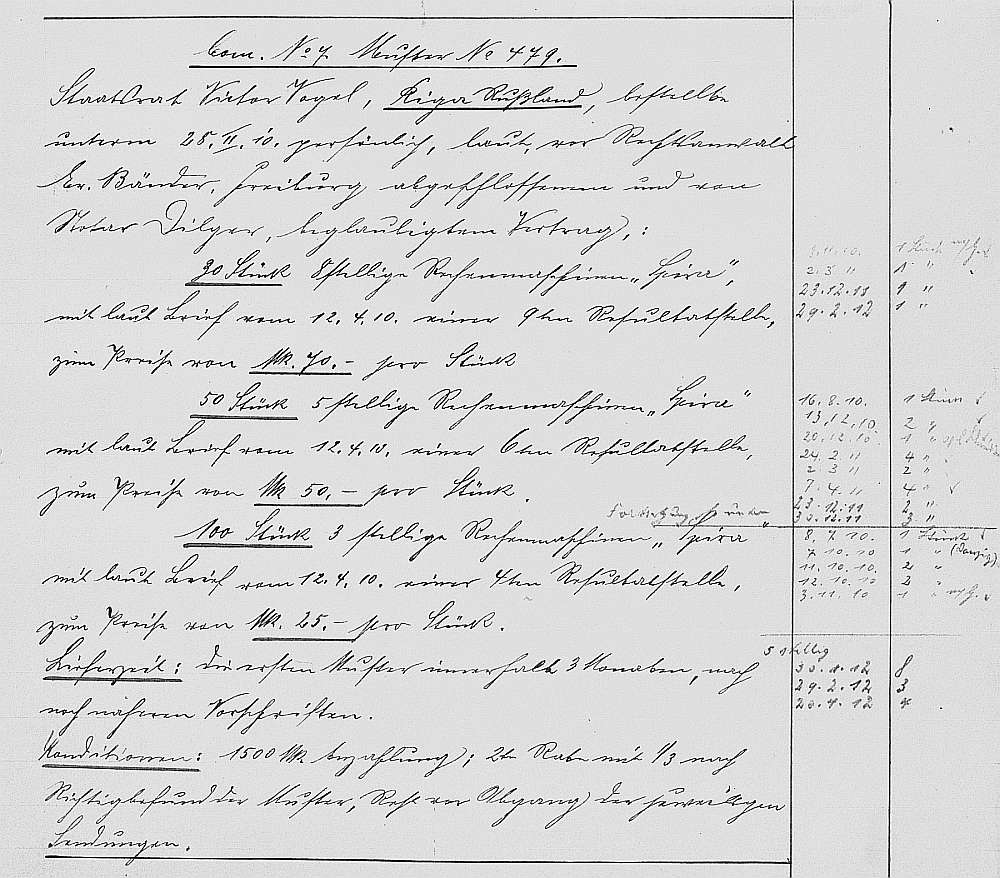 Com. No 7. Muster No 479.
Staatsrat Victor Vogel, Riga Rußland, bestellte
unterm 25. II. 10. persönlich, laut, vor Rechtsanwalt
Dr. Bänder, Freiburg abgeschlossenem und von
Notar Dilger, beglaubigtem Vertrag, :
30 Stück 8stellige Rechenmaschinen „Spira",
mit laut Brief vom 12. 4. 10. einer 9ten Resultatstelle,
zum Preise von Mk. 70.- pro Stück
50 Stück 5 stellige Rechenmaschinen „Spira"
mit laut Brief vom 12. 4. 10. einer 6ten Resultatstelle,
zum Preise von Mk 50.- pro Stück.
100 Stück 3 stellige Rechenmaschinen „Spira"
mit laut Brief vom 12. 4. 10. einer 4ten Resultatstelle,
zum Preise von Mk. 25.- pro Stück.
Lieferzeit: die ersten Muster innerhalb 3 Monaten, nach
noch näheren Vorschriften.
Konditionen: 1500 Mk Anzahlung; 2te Rate mit 1/3 nach
Richtigbefund der Muster, Rest vor Abgang der jeweiligen
Sendungen.
1 Stück
2. 3 " 1 "
23. 12. 11 1 "
29. 2. 12 1 "
16. 8. 10. 1 Stück
13. 12. 10. 2 "
20. 12. 10 1 "
24. 2. " 4 "
2. 3 " 2 "
7. 4. " 4 "
23. 12. 11 2 "
30. 12. 11 3 "
8. 7. 10. 1 Stück
7. 10. 10 1 " (Danzig)
11. 10. 10. 2 "
12. 10. 10 2 "
3. 11. 10 1 "
5 stellig
30. 1. 12 8
29. 2. 12 3
20. 4. 12